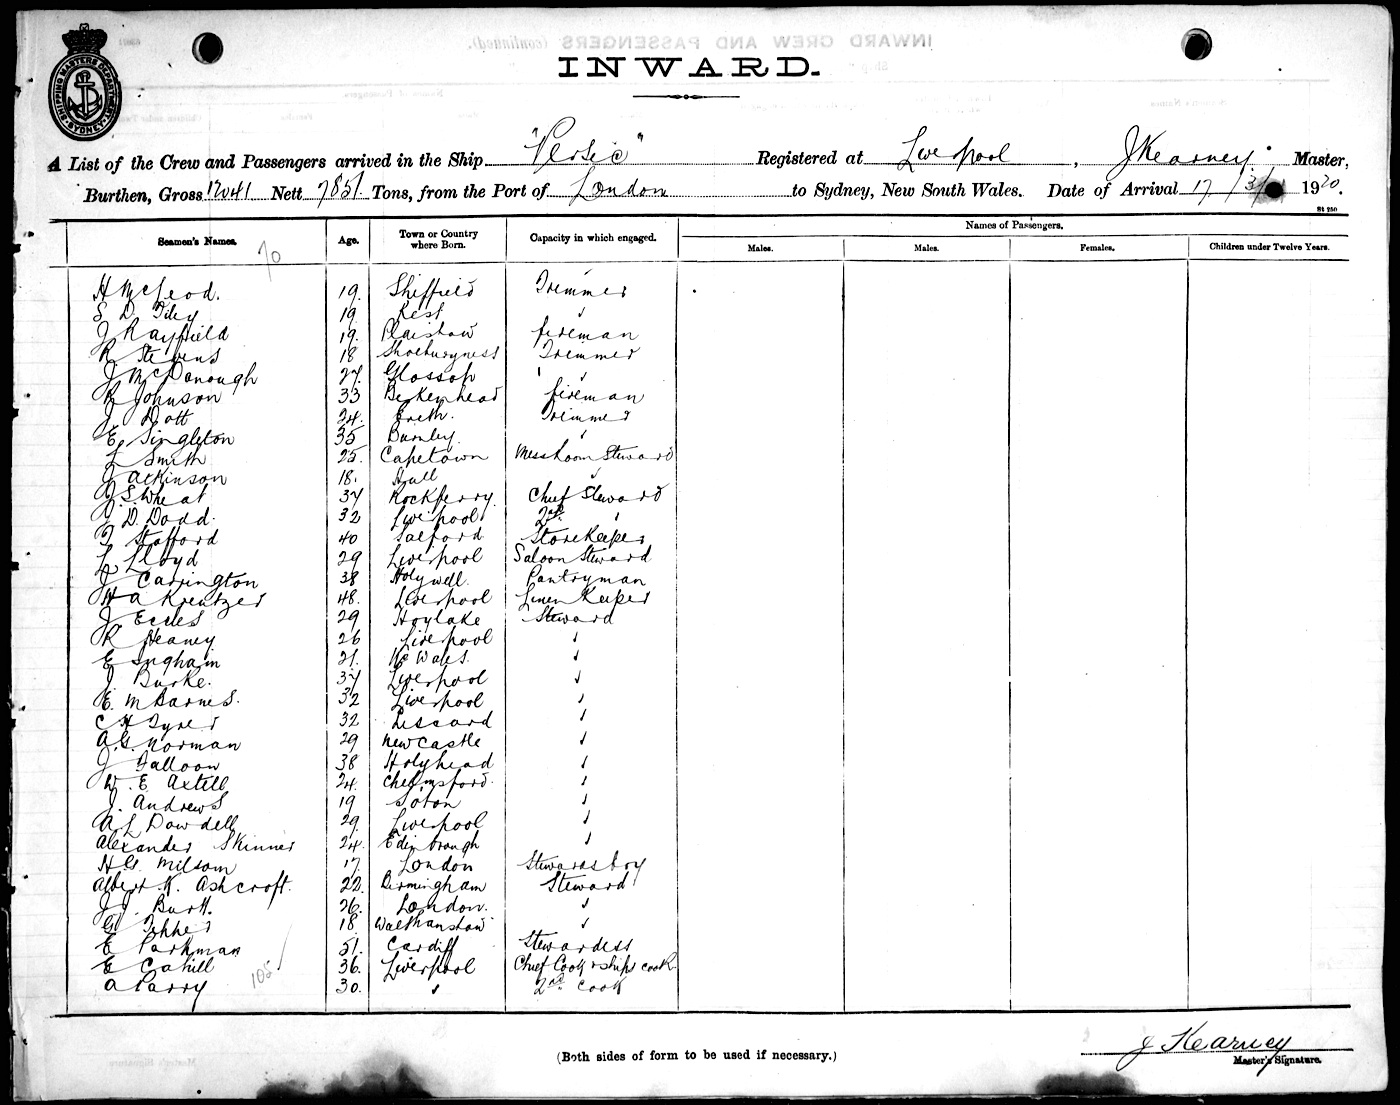 INWARD CREW AND PASSENGERS (continued).
INWARD.
SHIPPING MASTERS DEPARTMENT SYDNEY
A List of the Crew and Passengers arrived in the Ship "Persic" Registered at Liverpool, J Kearney Master,
Burthen, Gross 12041 Nett 7851 Tons, from the Port of London to Sydney, New South Wales. Date of Arrival 17/3/ 1920.
St 250
Seamen's Names. Age. Town or Country where Born. Capacity in which engaged. Names of Passengers.
Males. Males. Females. Children under Twelve Years.
70
H McLeod. 19. Sheffield Trimmer
S D Tiley 19. "
J Rayfield 19. Plaistow fireman
R Stevens 18 Shoeburyness Trimmer
J McDonough 27. Glossop "
R Johnson 33 Berkenhead fireman
J Dott 24. Erith. Trimmer
E Singleton 35 Burnley. "
L Smith 25. Capetown Messroom Steward
J Atkinson 18. Hull "
J S. Wheat 37 Rockferry. Chief Steward
J. D. Dodd. 32 Liverpool 2nd "
T Stafford 40 Salford Storekeeper
L Lloyd 29 Liverpool Saloon Steward
J Carrington 38 Holywell. Pantryman
H A Kreutzer 48. Liverpool Linen Keeper
J Eccles 29 Hoylake Steward
R Heaney 26 Liverpool "
E Ingham 21. Wales. "
J Burke. 37 Liverpool "
E. M Barnes. 32 Liverpool "
C H Tyrer 32 Liscard "
A. G. Norman 29 Newcastle "
J Falloon 38 Holyhead "
W. E. Axtell 24. Chelmsford. "
J. Andrews 19 Soton "
A L Dowdell 29. Liverpool "
Alexander Skinner 24. Edinbrough "
H G. Milsom 17. London Stewardsboy
Albert K. Ashcroft. 22. Birmingham Steward
J J. Burtt. 26. London. "
G. 18. Walthanstow "
E Parkman 51. Cardiff Stewardess
E Cahill 36. Liverpool Chief Cook & ships cook
A Parry 30. " 2nd Cook
105
(Both sides of form to be used if necessary.)
J Kearney
Master's Signature.